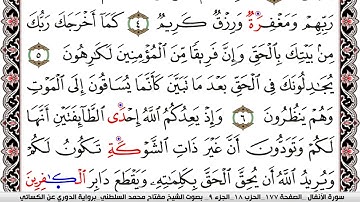 رَبِّهِمْ وَمَغْفِرَةٌ وَرِزْقٌ كَرِيمٌ ٤ كَمَا أَخْرَجَكَ رَبُّكَ
مِنۢ بَيْتِكَ بِالْحَقِّ وَإِنَّ فَرِيقًا مِّنَ الْمُؤْمِنِينَ لَكَارِهُونَ ٥
يُجَادِلُونَكَ فِي الْحَقِّ بَعْدَ مَا تَبَيَّنَ كَأَنَّمَا يُسَاقُونَ إِلَى الْمَوْتِ
وَهُمْ يَنظُرُونَ ٦ وَإِذْ يَعِدُكُمُ اللَّهُ إِحْدَى الطَّائِفَتَيْنِ أَنَّهَا
لَكُمْ وَتَوَدُّونَ أَنَّ غَيْرَ ذَاتِ الشَّوْكَةِ تَكُونُ لَكُمْ
وَيُرِيدُ اللَّهُ أَن يُحِقَّ الْحَقَّ بِكَلِمَاتِهِ وَيَقْطَعَ دَابِرَ الْكَافِرِينَ
سورة الأنفال . الصفحة ١٧٧ . الحزب ١٨ . الجزء ٩ . بصوت الشيخ مفتاح محمد السلطني . برواية الدوري عن الكسائي